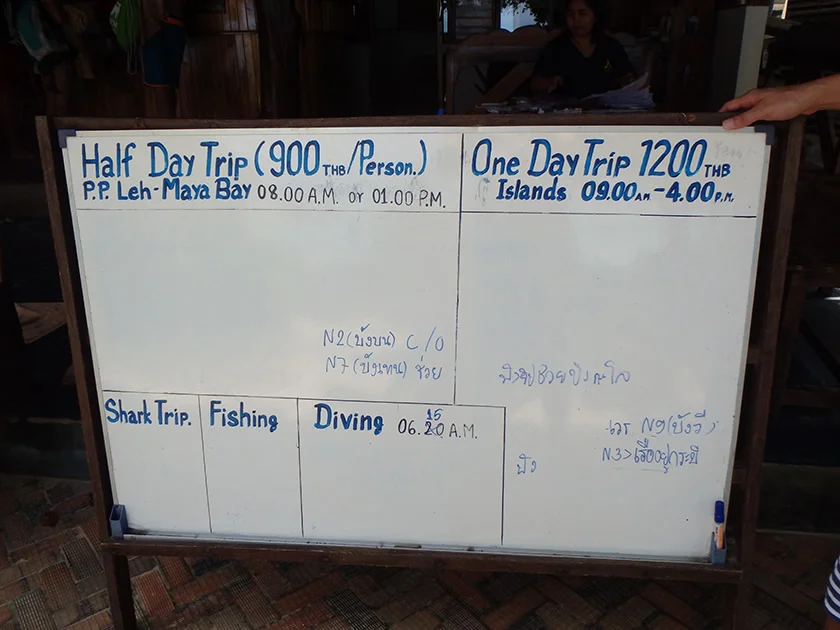 Half Day Trip (900 THB/Person.)
P.P. Leh-Maya Bay 08.00 A.M. or 01.00 P.M.
One Day Trip 1200 THB
Islands 09.00 AM - 4.00 P.M.
N2 (บังบน) C/O
N7 (บังเทน) ช่วย
Shark Trip.
Fishing
Diving 06.15 A.M.
เวร N9 (บังวี)
N3 > เรืออยู่กระบี่
บัง